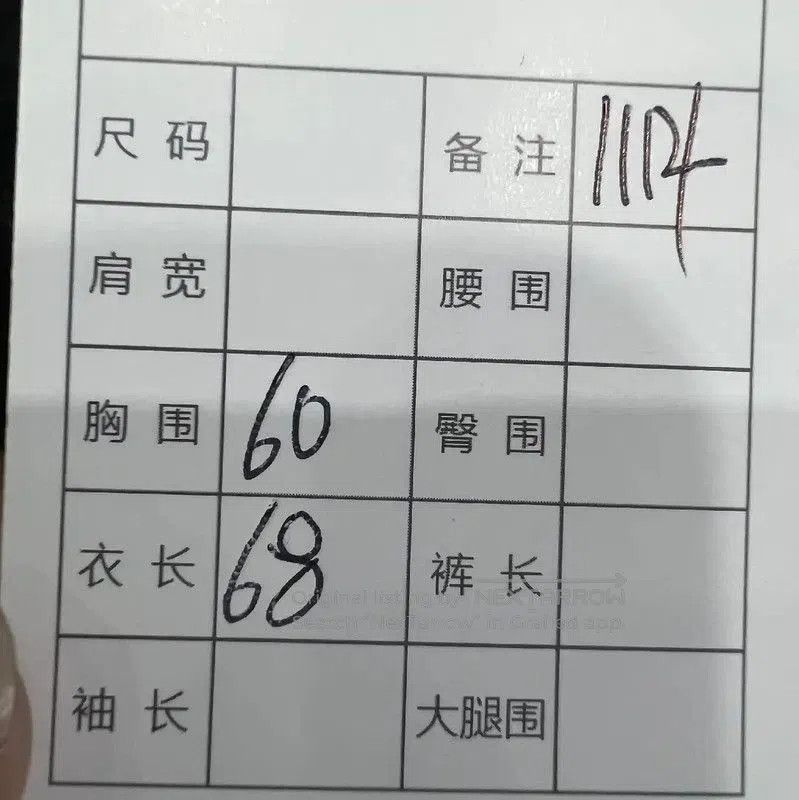 尺码 备注 1124
肩宽 腰围
胸围 60 臀围
衣长 68 裤长
Original listing by: NEXTARROW
Search "Nextarrow" in Grailed app
袖长 大腿围